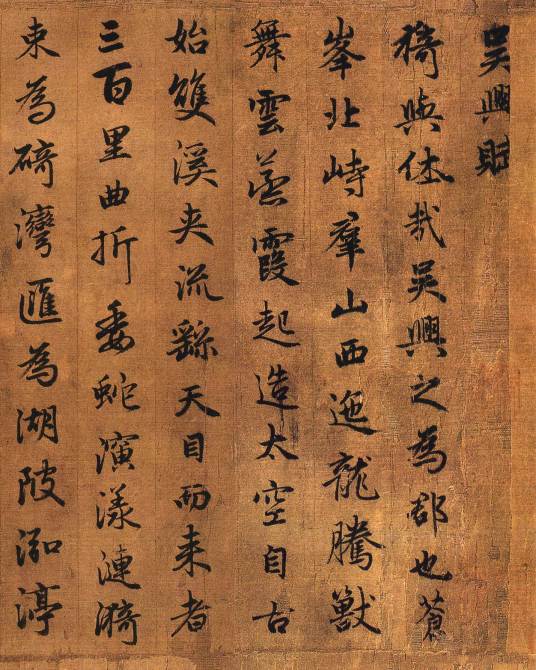 吴興賦
猗與休哉吴興之為郡也蒼
峯北峙羣山西迤龍騰獸
舞雲蒸霞起造太空自古
始雙溪夹流繇天目而来者
三百里曲折委蛇演漾漣漪
束為碕灣匯為湖陂泓渟